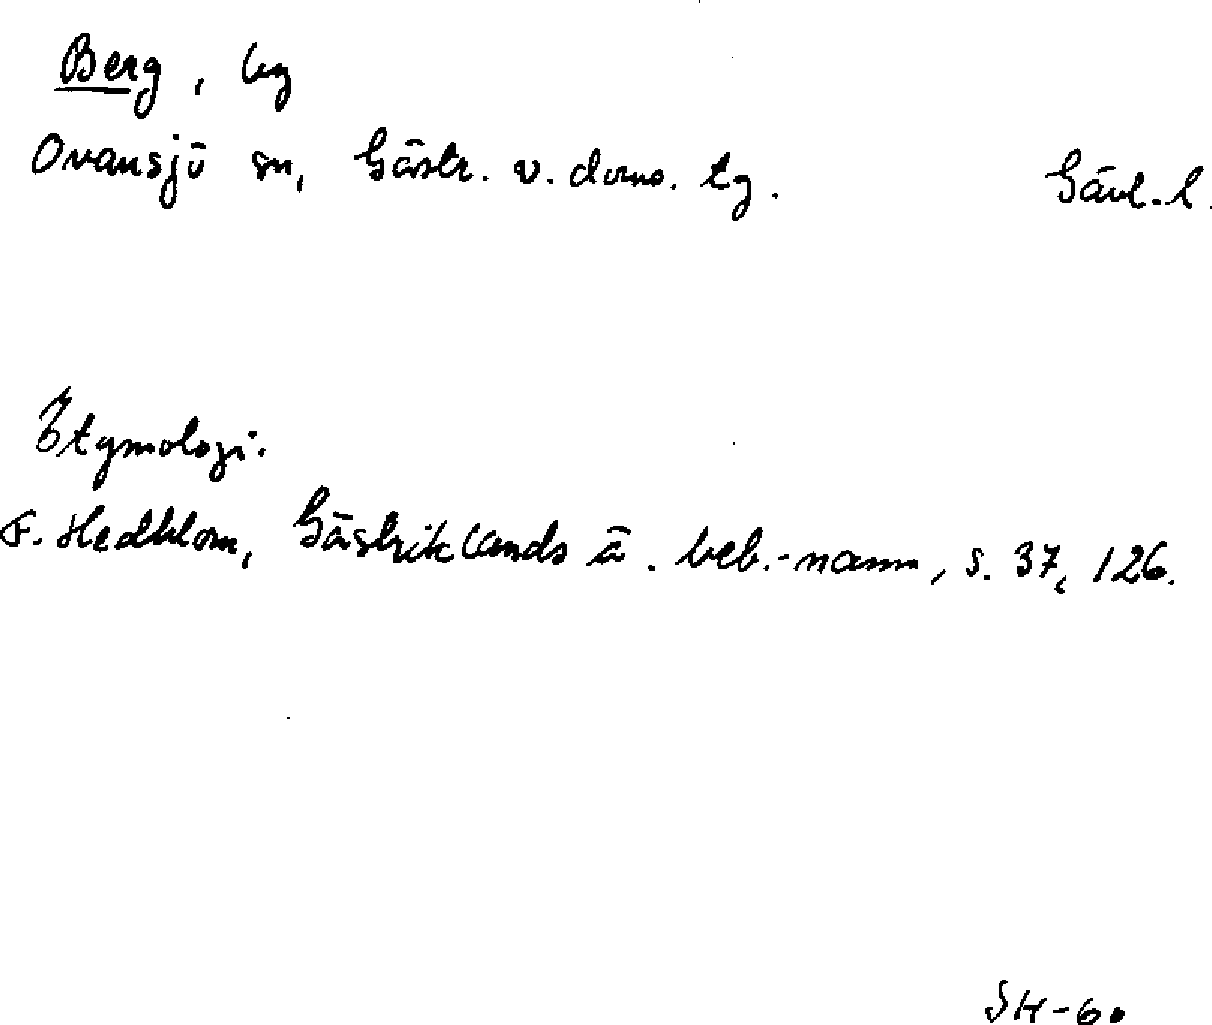 Berg, by
Ovansjö sn, Gästr. v. doms. tg. Gävl. l.
Etymologi.
F. Hedblom, Gästriklands ä. beb.-namn, s. 37, 126.
SH-60